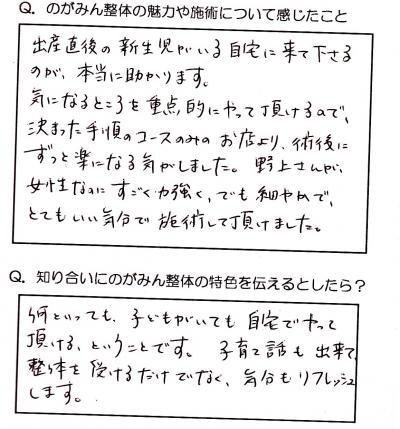 Q. のがみん整体の魅力や施術について感じたこと
出産直後の新生児がいる自宅に来て下さる
のが、本当に助かります。
気になるところを重点的にやって頂けるので、
決まった手順のコースのみのお店より、術後に
ずっと楽になる気がしました。野上さんが、
女性なのにすごく力強く、でも細やかで、
とてもいい気分で施術して頂けました。
Q. 知り合いにのがみん整体の特色を伝えるとしたら？
何といっても、子どもがいても自宅でやって
頂ける、ということです。子育て話も出来て
整体を受けるだけでなく、気分もリフレッシュ
します。